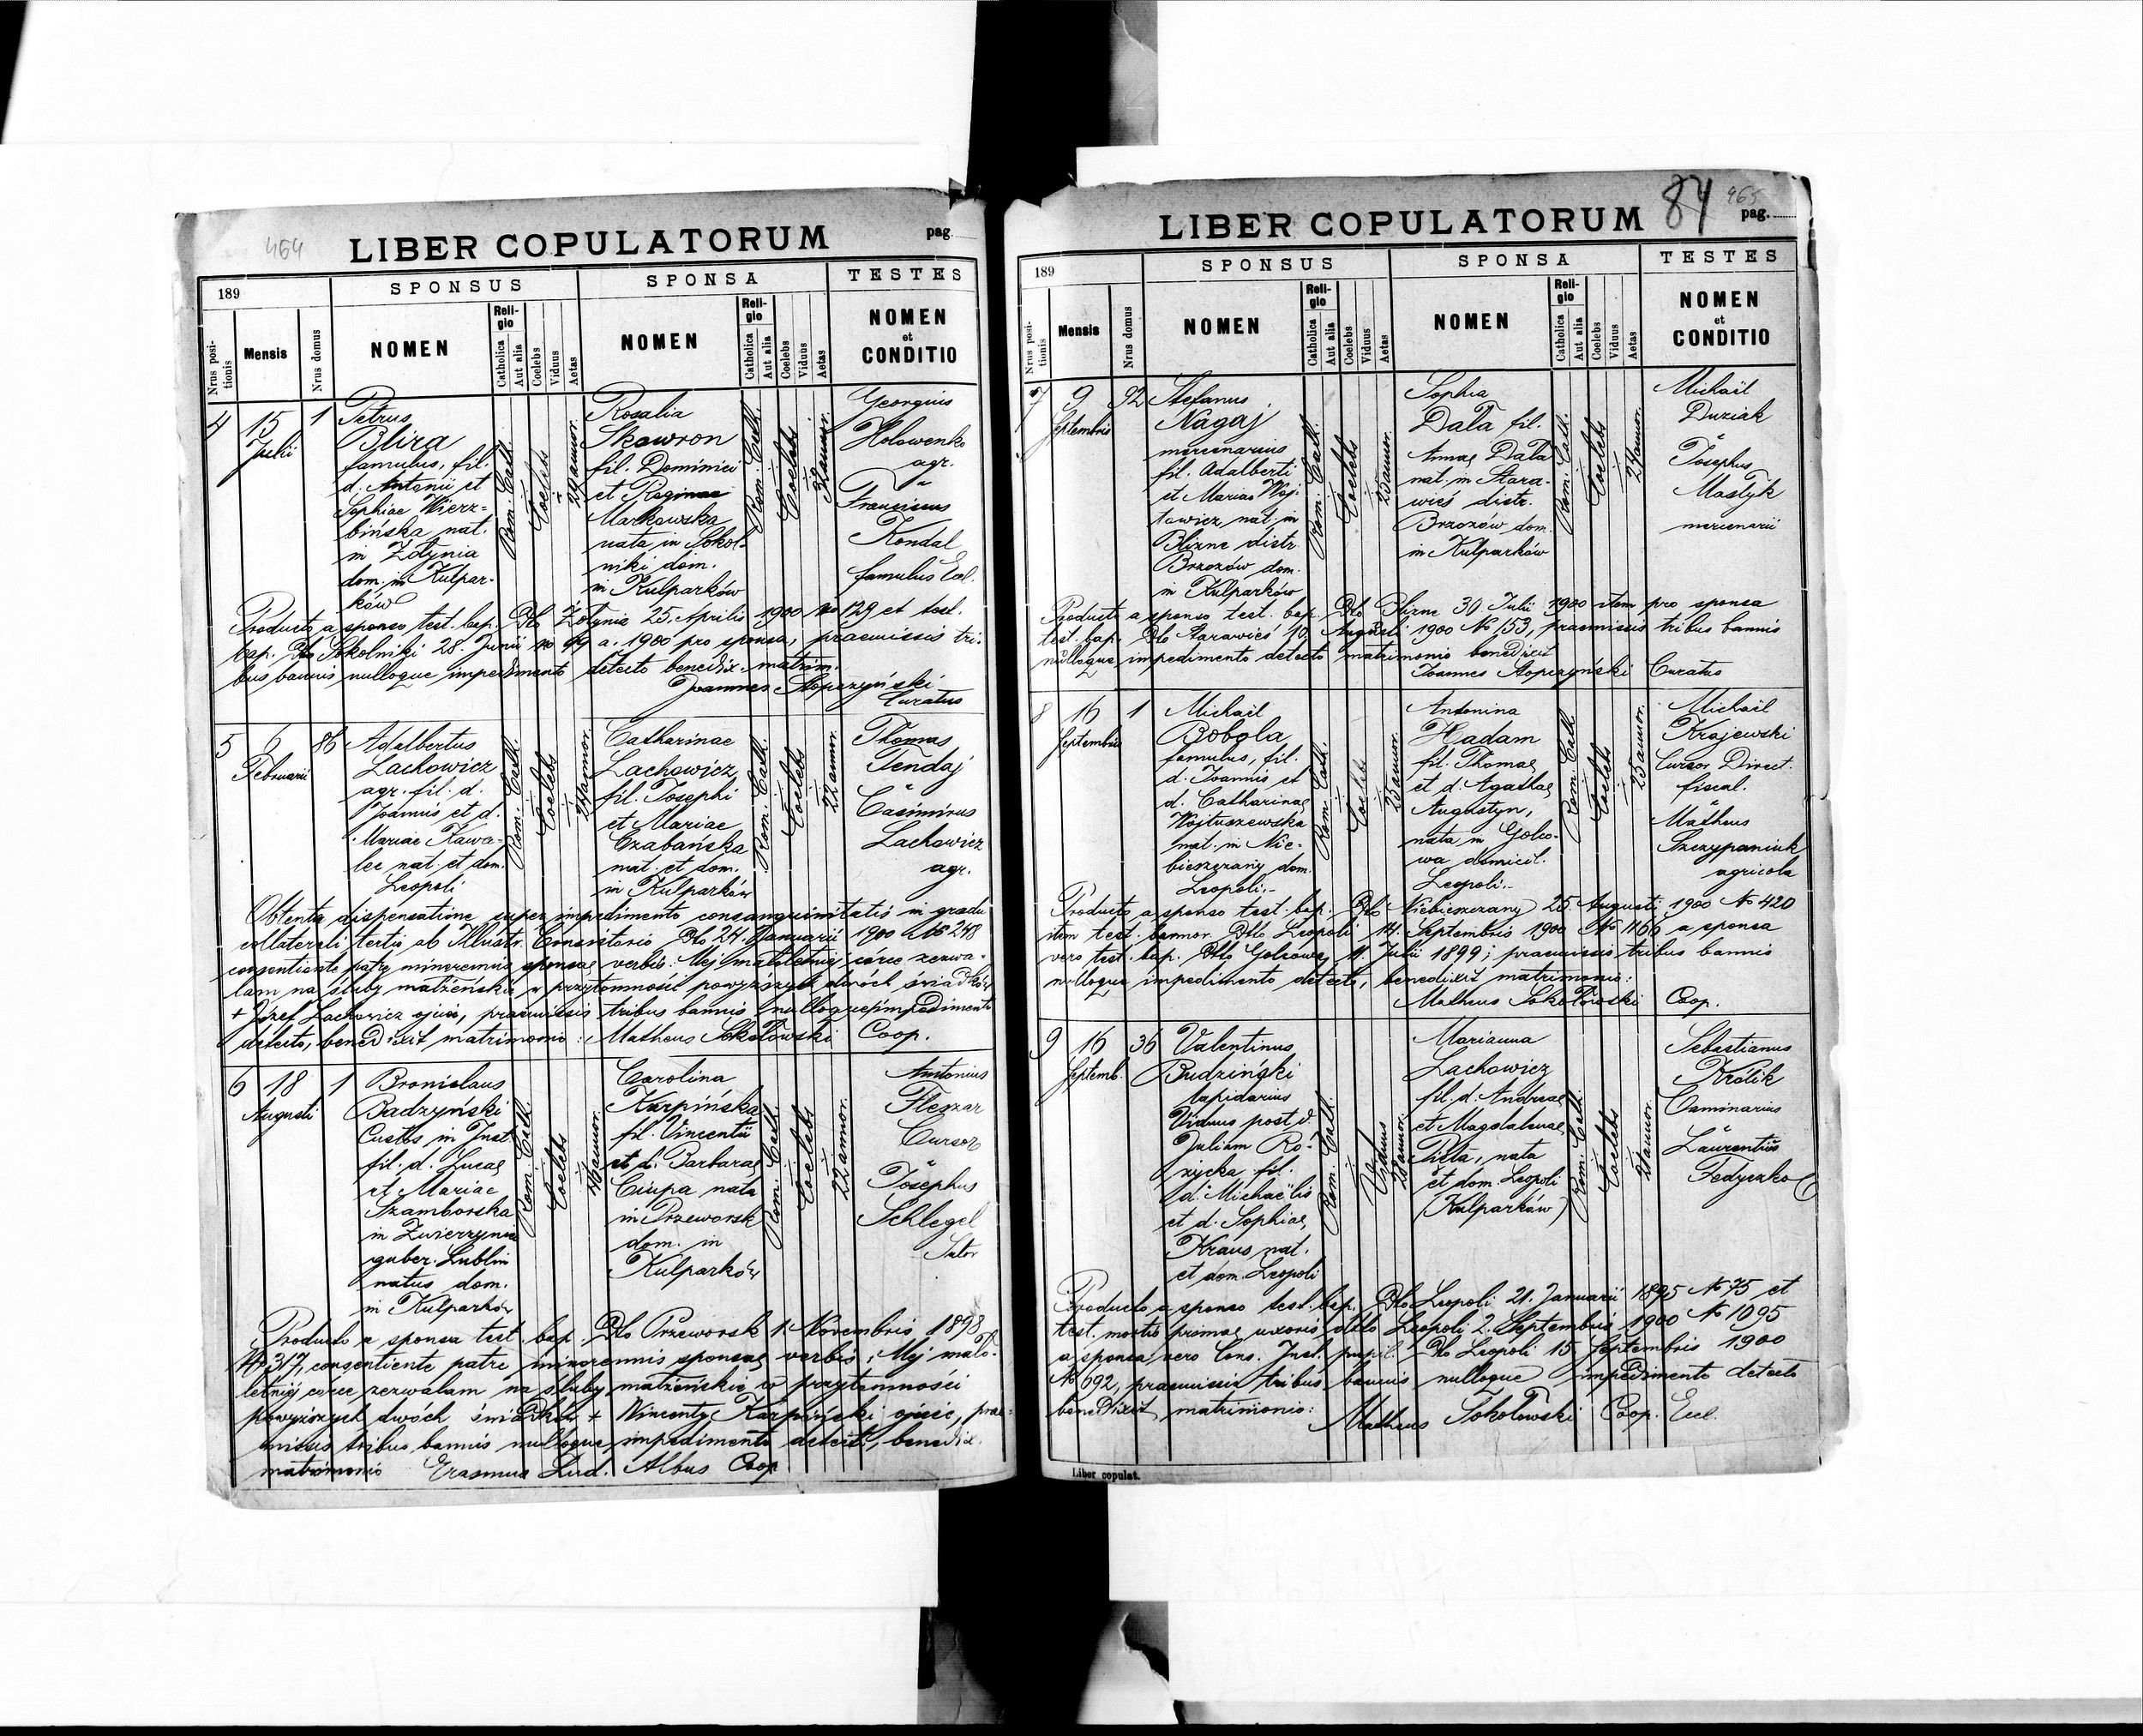 464
LIBER COPULATORUM
pag.
189
SPONSUS
SPONSA
TESTES
Nrus positionis
Mensis
Nrus domus
NOMEN
Religio
Catholica
Aut alia
Coelebs
Viduus
Aetas
NOMEN
Religio
Catholica
Aut alia
Coelebs
Viduus
Aetas
NOMEN
et
CONDITIO
4
15
Julii
1
Petrus
Blira
famulus, fil.
d. Antonii et
Sophiae Wierz-
bińska nat.
in Żołynia
dom. in Kulpar-
ków
Rom. Cath.
Coelebs
Rosalia
Skowron
fil. Dominici
et Reginae
Markowska
nata in Sokol-
niki dom.
in Kulparków
Rom. Cath.
Coelebs
Georgius
Holowenko
agr.
Franciscus
Kondal
famulus Eccl.
Producto a sponso test. bap. Dto Żołynia 25. Aprilis 1900 No 129 et test.
bap. Dto Sokolniki 28. Junii No 99 a. 1900 pro sponsa, praemissis tri-
bus bannis nulloque impedimento detecto benedix. matrim.
Joannes Stopczyński
Curatus
5
6
Februarii
86
Adalbertus
Lachowicz
agr. fil. d.
Joannis et d.
Mariae Kawa-
lec nat. et dom.
Leopoli
Rom. Cath.
Coelebs
Catharinae
Lachowicz
fil. Josephi
et Mariae
Czabańska
nat. et dom.
in Kulparków
Rom. Cath.
Coelebs
22 annor.
Thomas
Fendaj
Casimirus
Lachowicz
agr.
Obtenta dispensatione super impedimento consanguinitatis in gradu
collaterali tertio ab Illustr. Consistorio Dto 24. Januarii 1900 No 248
consentiente patre minorennis sponsae verbis: Mej małoletniej córce zezwa-
lam na śluby małżeńskie w przytomności powyższych dwóch świadków
+ Józef Lachowicz ojciec, praemissis tribus bannis nulloque impedimento
detecto, benedixit matrimonio: Matheus Sokołowski Coop.
6
18
Augusti
1
Bronislaus
Badzyński
Custos in Inst.
fil. d. Lucae
et Mariae
Szamborska
in Zwierzyniec
guber. Lublin
natus dom.
in Kulparków
Rom. Cath.
Coelebs
Carolina
Karpińska
fil. Vincentii
et d. Barbarae
Ciupa nata
in Przeworsk
dom. in
Kulparków
Rom. Cath.
Coelebs
22 annor.
Antonius
Fleszar
Cursor
Josephus
Schlegel
Sutor
Producto a sponsa test. bap. Dto Przeworsk 1. Novembris 1898
No 317, consentiente patre minorennis sponsae verbis: Mej mało-
letniej córce zezwalam na śluby małżeńskie w przytomności
powyższych dwóch świadków + Wincenty Karpiński ojciec, prae-
missis tribus bannis nulloque impedimento detecto, benedix.
matrimonio Erasmus Lud. Albus Coop
84
465
LIBER COPULATORUM
pag.
189
SPONSUS
SPONSA
TESTES
Nrus positionis
Mensis
Nrus domus
NOMEN
Religio
Catholica
Aut alia
Coelebs
Viduus
Aetas
NOMEN
Religio
Catholica
Aut alia
Coelebs
Viduus
Aetas
NOMEN
et
CONDITIO
7
9
Septembris
92
Stefanus
Nagaj
mercenarius
fil. Adalberti
et Mariae Woj-
towicz nat. in
Blizne distr.
Brzozów dom.
in Kulparków
Rom. Cath.
Coelebs
25 annor.
Sophia
Data fil.
Annae Data
nat. in Stara-
wieś distr.
Brzozów dom.
in Kulparków
Rom. Cath.
Coelebs
Michaël
Duziak
Josephus
Mastyk
mercenarii
Producto a sponso test. bap. Dto Blizne 30 Julii 1900 item pro sponsa
test. bap. Dto Starawieś 10. Augusti 1900 No 153, praemissis tribus bannis
nulloque impedimento detecto matrimonio benedixit
Joannes Stopczyński Curatus
8
16
Septembris
1
Michaël
Bobola
famulus, fil.
d. Joannis et
d. Catharinae
Wojtuszewska
nat. in Nie-
bieszczany dom.
Leopoli.
Rom. Cath.
Coelebs
25 annor.
Antonina
Hadam
fil. Thomae
et d. Agathae
Augustyn,
nata in Golco-
wa domicil.
Leopoli.
Rom. Cath.
Coelebs
25 annor.
Michaël
Krajewski
Cursor Direct.
fiscal.
Matheus
Szczypaniuk
agricola
Producto a sponso test. bap. Dto Niebieszczany 25. Augusti 1900 No 420
item test. bannor. Dto Leopoli 14. Septembris 1900 No 1166 a sponsa
vero test. bap. Dto Golcowa 11. Julii 1899; praemissis tribus bannis
nulloque impedimento detecto, benedixit matrimonio:
Matheus Sokołowski Coop.
9
16
Septemb.
36
Valentinus
Budziński
lapidarius
Viduus post d.
Juliam Ró-
życka, fil.
d. Michaëlis
et d. Sophiae
Kraus nat.
et dom. Leopoli
Rom. Cath.
Viduus
28 annor.
Marianna
Lachowicz
fil. d. Andreae
et Magdalenae
Pieta, nata
et dom. Leopoli
(Kulparków)
Rom. Cath.
Coelebs
Sebastianus
Królik
Caminarius
Laurentius
Fedyczko
Producto a sponso test. bap. Dto Leopoli 21. Januarii 1895 No 75 et
test. mortis primae uxoris ddto Leopoli 2. Septembris 1900 No 1095
a sponsa vero Cons. Inst. pupil. Dto Leopoli 15. Septembris 1900
No 692, praemissis tribus bannis nulloque impedimento detecto
benedixit matrimonio: Matheus Sokołowski Coop. Eccl.
Liber copulat.